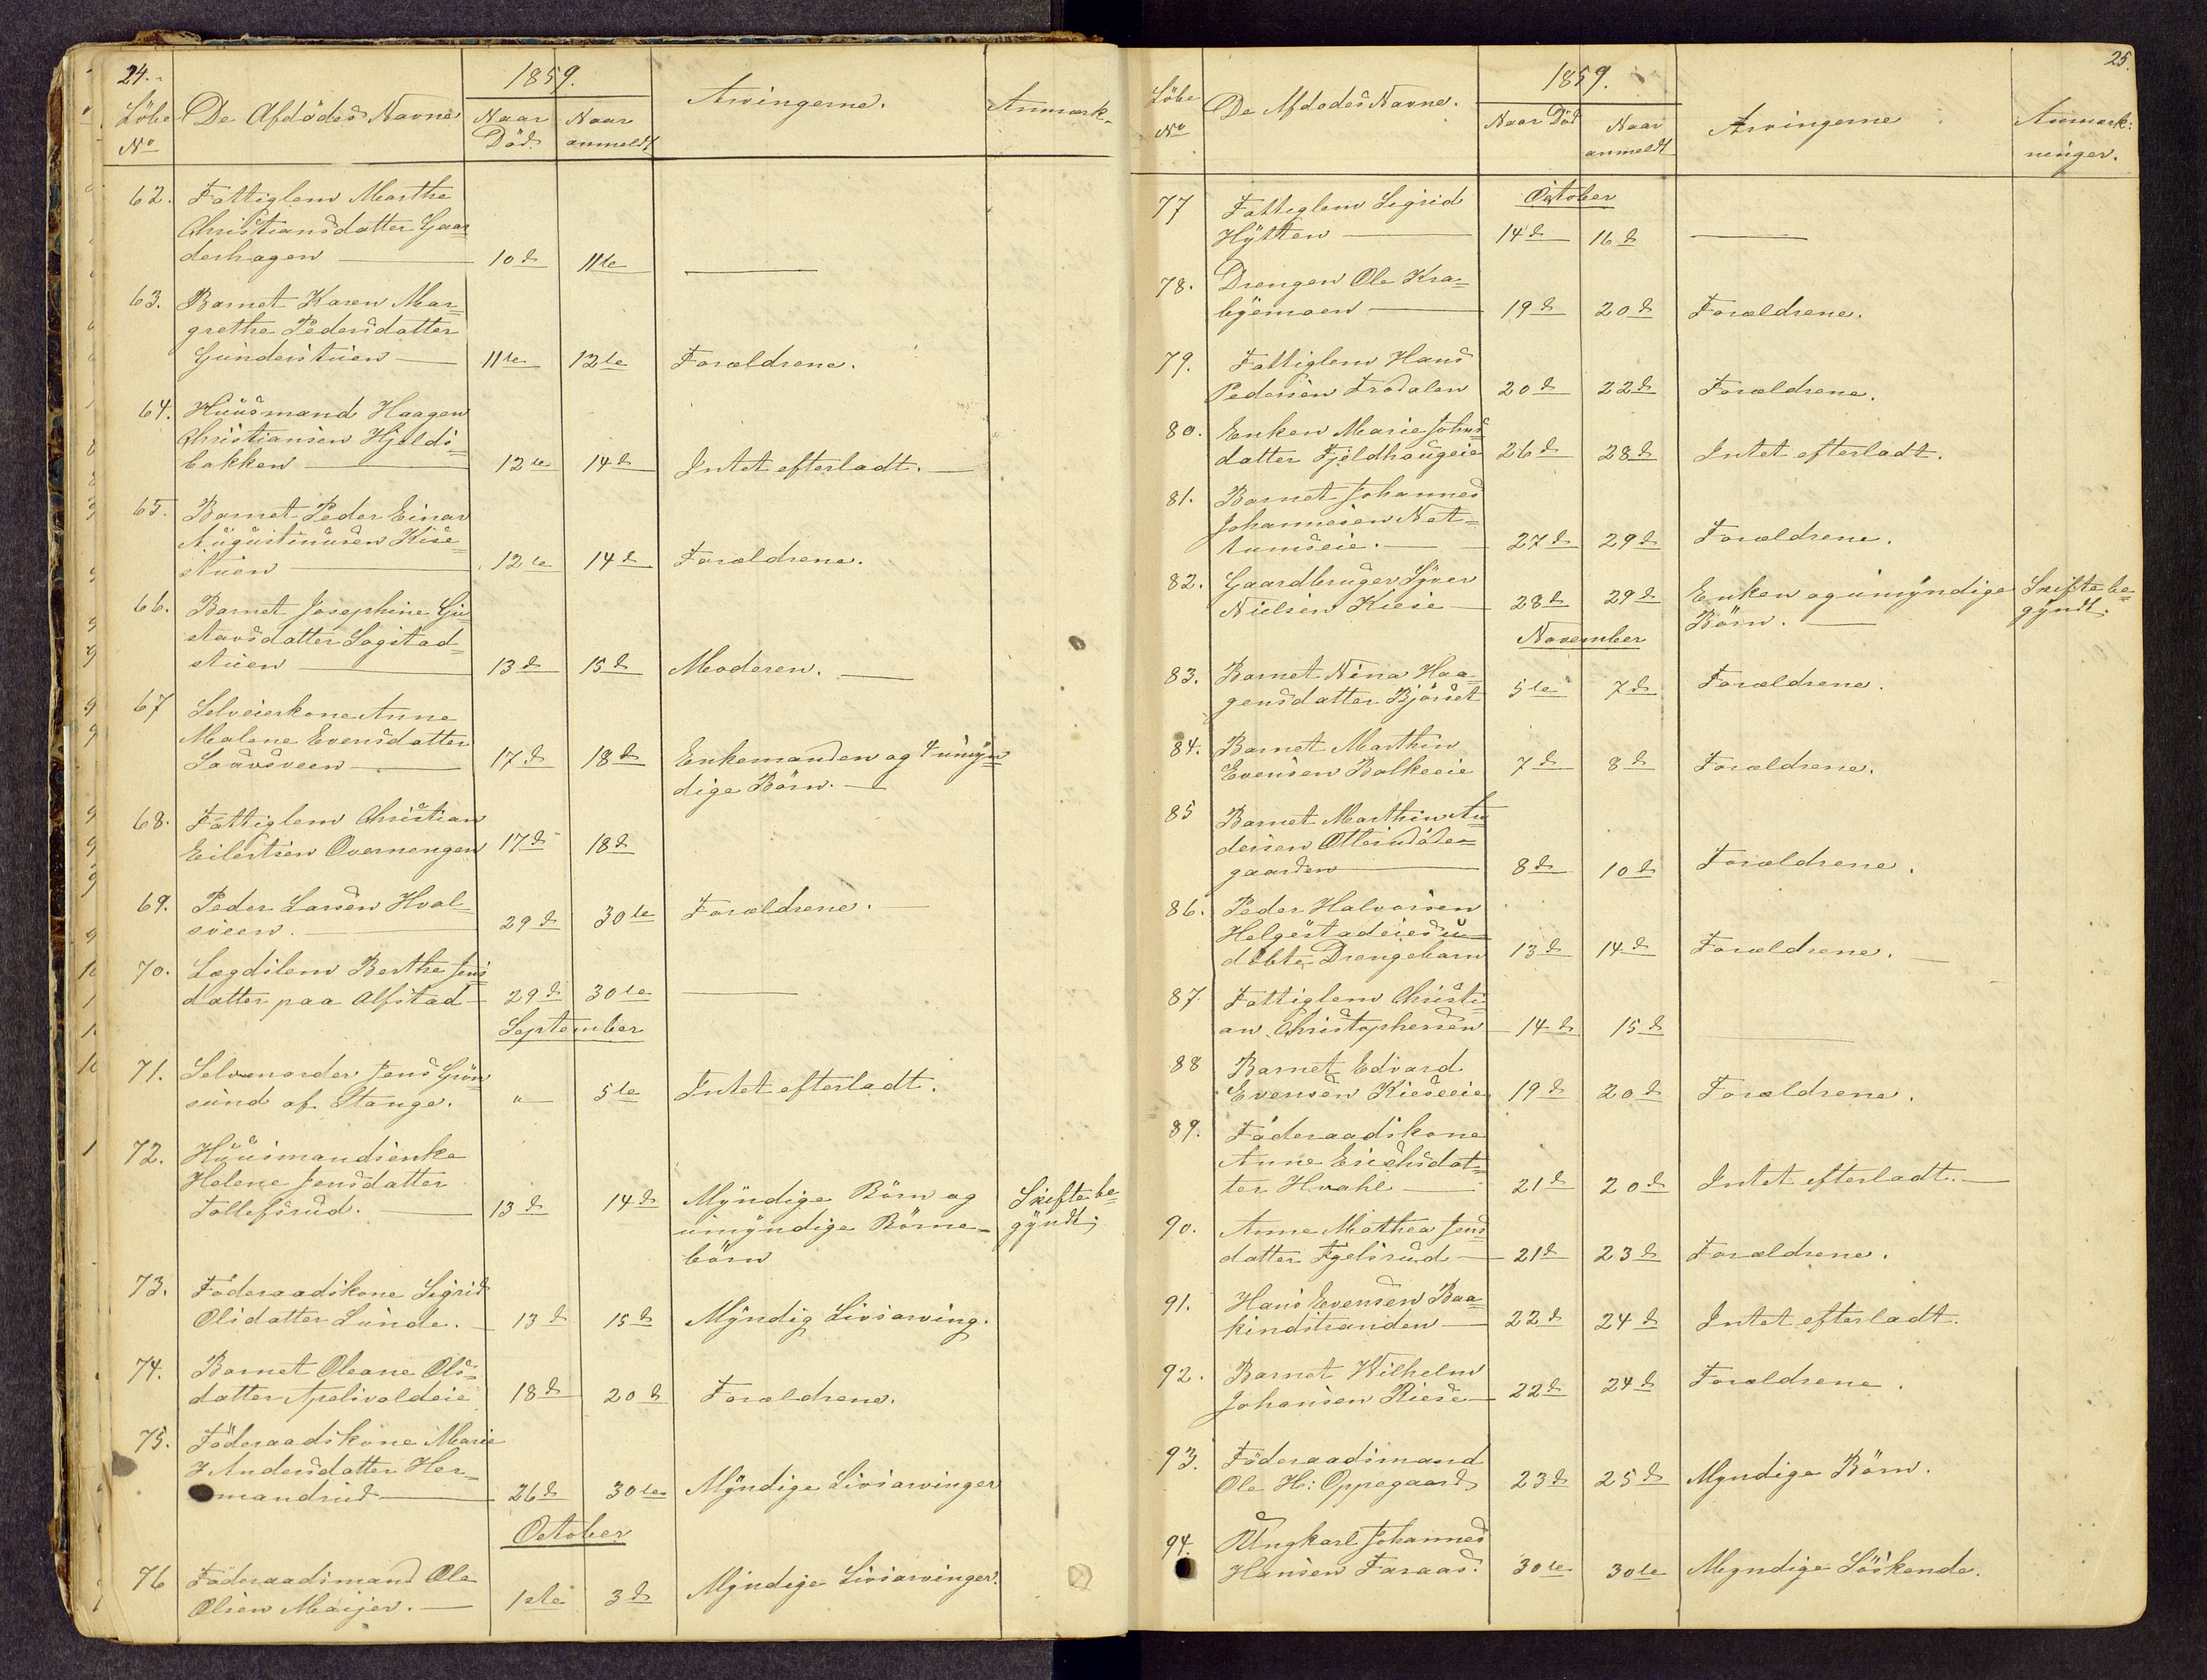 24.
1859.
Löbe No De Afdödes Navne Naar Död. Naar anmeldt Arvingerne. Anmærk-
62. Fattiglem Marthe
Christiansdatter Gaar=
derhagen 10d 11te
63. Barnet Karen Mar=
grethe Pedersdatter
Gunderstuen 11te 12te Forældrene.
64. Huusmand Haagen
Christiansen Hjelds=
bakken 12te 14d Intet efterladt.
65. Barnet Peder Einar
Augustinusen Kise=
stuen 12te 14d Forældrene.
66. Barnet Josephine Gu=
stavsdatter Sogstad=
stuen 13d 15d Moderen.
67 Selveierkone Anne
Malene Evensdatter
17d 18d Enkemanden og 4 umyn=
dige Börn.
68. Fattiglem Christian
Eilertsen Overnengen 17d 18d
69. Peder Larsen Hval=
sveen. 29d 30te Forældrene.
70. Lægdslem Berthe Jens=
datter paa Alfstad 29d 30te
September
71. Selvmorder Jens Grön=
sund af Stange. " 5te Intet efterladt.
72. Huusmandsenke
Helene Jensdatter
Tollefsrud. 13d 14d Myndige Börn og Skifte be=
umyndige Börne= gyndt;
börn
73. Föderaadskone Sigrid
Olsdatter Lunde. 13d 15d Myndig Livsarving.
74. Barnet Oleane Ols=
datter Apelsvoldeie 18d 20d Forældrene.
75. Föderaadskone Marie
Andersdatter Her=
mandrud 26d 30te Myndige Livsarvinger
October
76 Föderaadsmand Ole
Olsen Meijer. 1ste 3d Myndige Livsarvinger.
25.
1859.
Löbe No De Afdödes Navne. Naar Död Naar anmeldt Arvingerne Anmærk:
ninger.
October
77 Fattiglem Sigrid
Hytten 14d 16d
78. Drengen Ole Kra=
byemoen 19d 20d Forældrene.
79. Fattiglem Hans
Pedersen Frodalen 20d 22d Forældrene.
80. Enken Marie Johns=
datter Fjeldhaugeie 26d 28d Intet efterladt.
81. Barnet Johannes
Johannesen Net=
tumseie. 27d 29d Forældrene.
82. Gaardbruger Syver
Nielsen Kiese 28d 29d Enken og umyndige Skifte be=
Börn. gyndt.
November
83. Barnet Nina Haa=
gensdatter Bjönet 5te 7d Forældrene.
84. Barnet Marthin
Evensen Balkeeie 7d 8d Forældrene.
85 Barnet Marthin An=
dersen
gaarden 8d 10d Forældrene.
86. Peder Halvorsen
Helgestadeies u=
döbte Drengebarn 13d 14d Forældrene.
87. Fattiglem Christi=
an Christophersen 14d 15d
88 Barnet Edvard
Evensen Kieseeie 19d 20d Forældrene.
89. Föderaadskone
Anne Erichsdat=
ter Hvahl 21d 20d Intet efterladt.
90. Anne Mathea Jens=
datter Fjelsrud 21d 23d Forældrene.
91. Hans Evensen Baa=
kindstranden 22d 24d Intet efterladt.
92. Barnet Wilhelm
Johansen Riese 22d 24d Forældrene.
93. Föderaadsmand
Ole H: Oppegaard 23d 25d Myndige Börn.
94. Ungkarl Johannes
Hansen Faraas. 30te 30te Myndige Söskende.